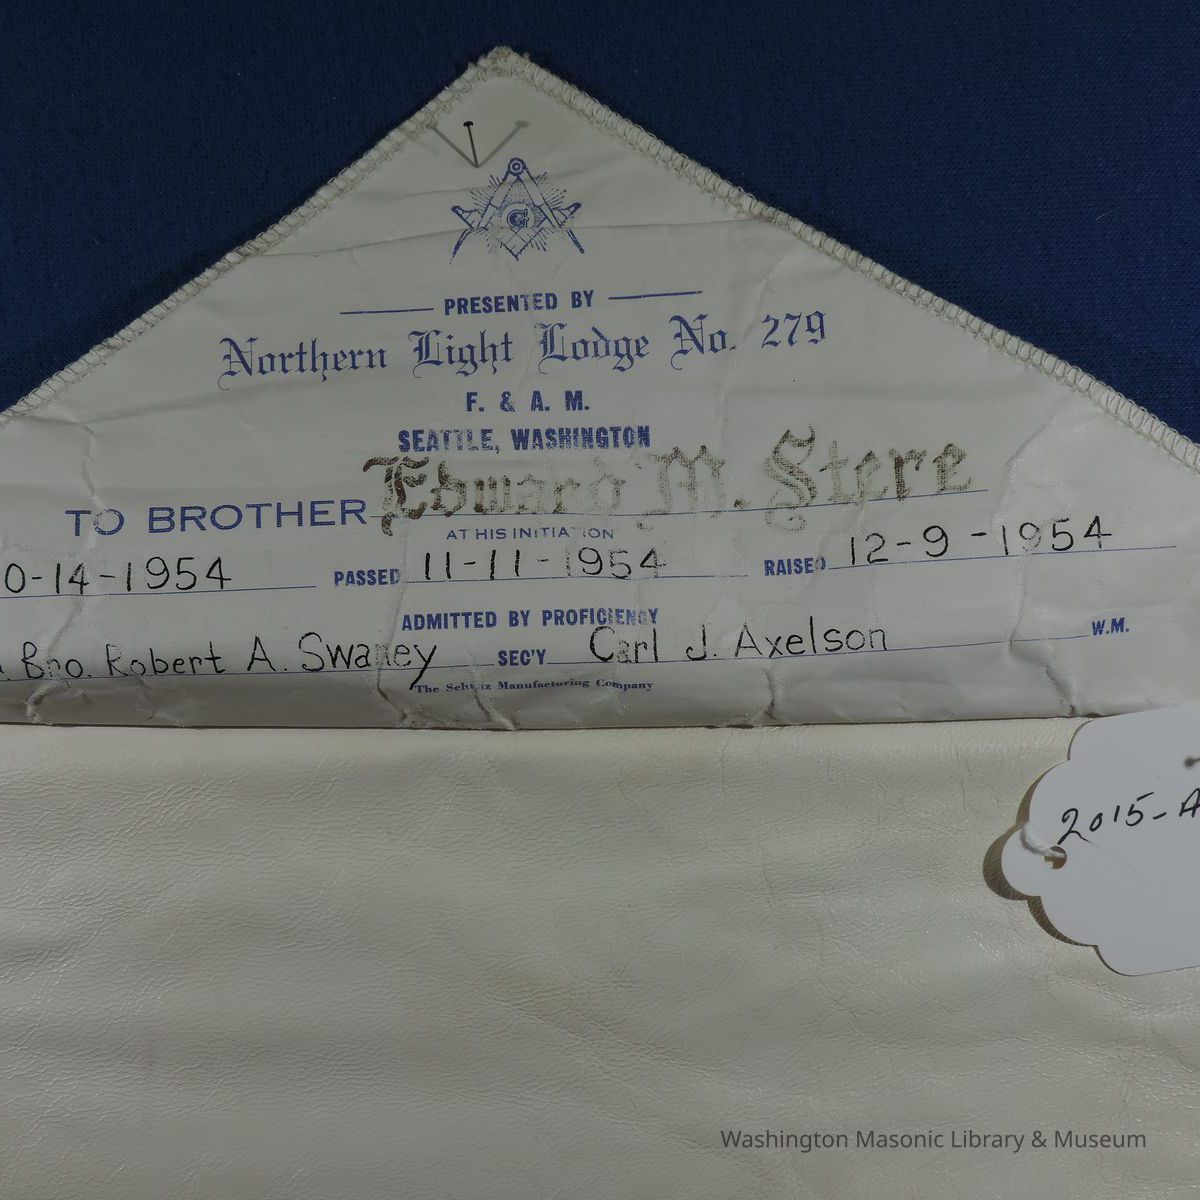 G
PRESENTED BY
Northern Light Lodge No. 279
F. & A. M.
SEATTLE, WASHINGTON
TO BROTHER Edward M. Stere
AT HIS INITIATION
0-14-1954 PASSED 11-11-1954 RAISED 12-9-1954
ADMITTED BY PROFICIENCY
Bro. Robert A. Swaney SEC'Y Carl J. Axelson W.M.
The Schwiz Manufacturing Company
2015-A
Washington Masonic Library & Museum